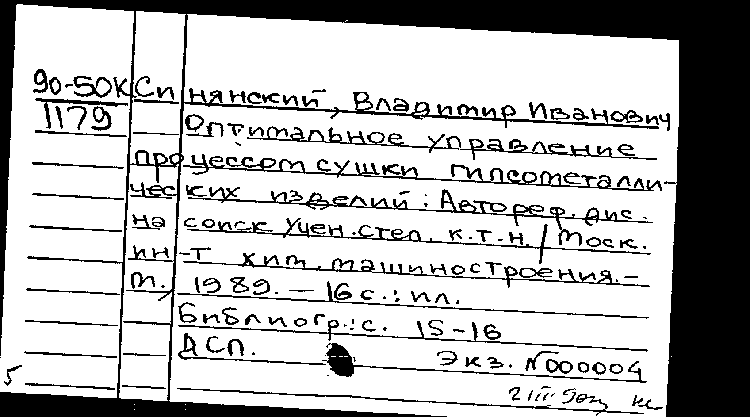 90-50К Синянский, Владимир Иванович
1179 Оптимальное управление
процессом сушки гипсометалли-
ческих изделий : Автореф. дис.
на соиск учен. степ. к.т.н. / Моск.
ин-т хим. машиностроения. –
М., 1989. – 16 с. : ил.
Библиогр.: с. 15-16
ДСП. Экз. №000004
5